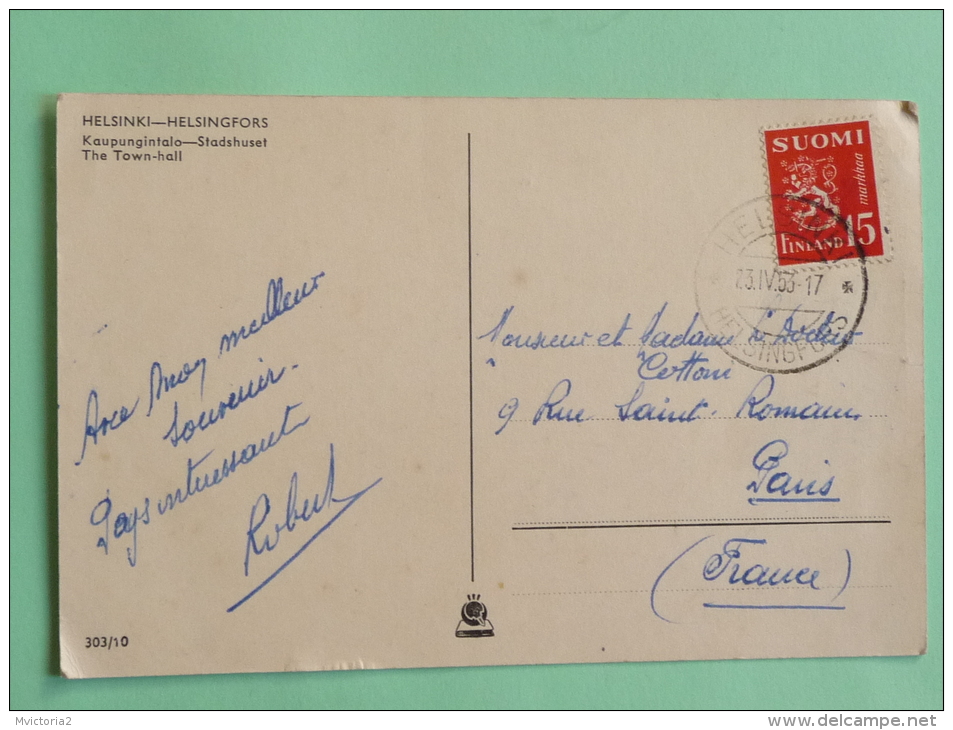 HELSINKI—HELSINGFORS
Kaupungintalo—Stadshuset
The Town-hall
Avec Mon meilleur
Souvenir.
Pays intéressant
Robert
303/10
SUOMI
markkaa
FINLAND 15
HELSINKI
23.IV.53-17
HELSINGFORS
Monsieur et Madame
Cottom
9 Rue Saint. Romain
Paris
(France)
Mvictoria2
www.delcampe.net